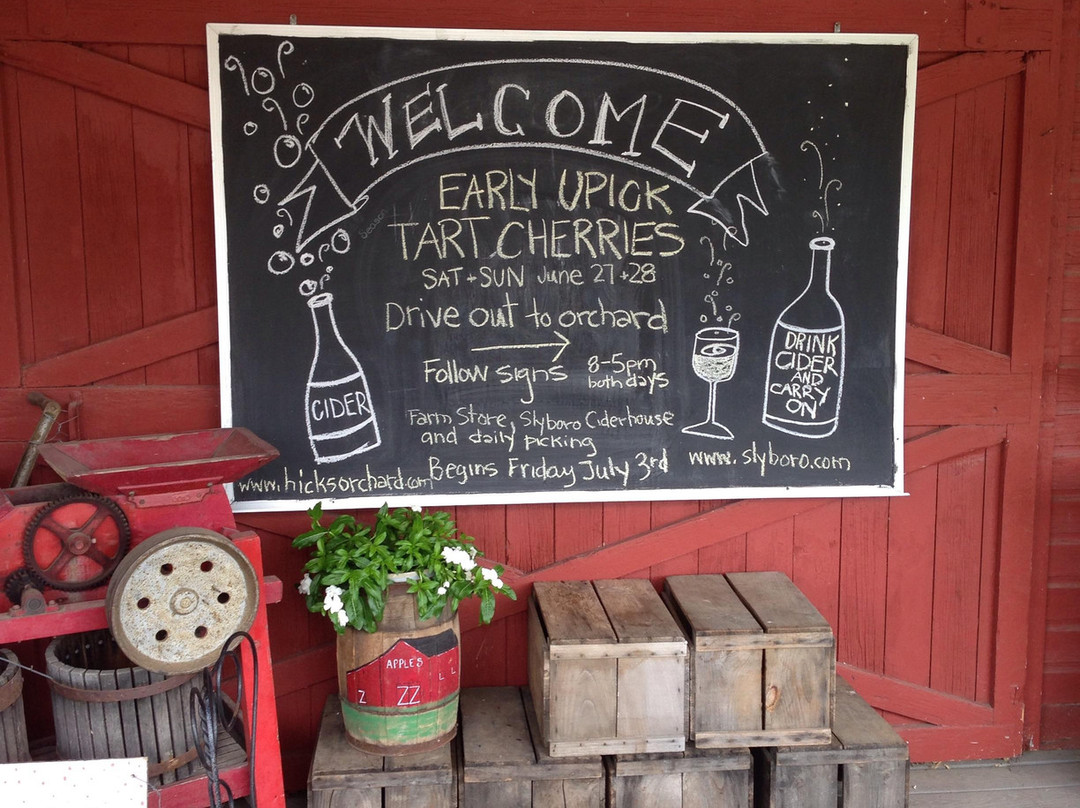 WELCOME
EARLY UPICK
TART CHERRIES
SAT + SUN June 27 + 28
Drive out to orchard
Follow signs 8-5pm
both days
Farm Store, Slyboro Ciderhouse
and daily picking
Begins Friday July 3rd
www.hicksorchard.com
www.slyboro.com
CIDER
DRINK
CIDER
AND
CARRY
ON
APPLES
Z ZZ L L